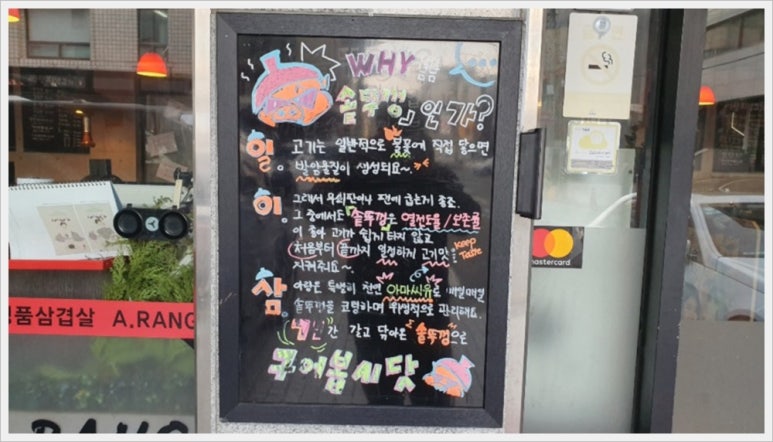 WHY
솥뚜껑」인가?
일. 고기는 일반적으로 불꽃에 직접 닿으면
발암물질이 생성되요~
이. 그래서 무쇠판이나 팬에 굽는게 좋죠.
그 중에서도 "솥뚜껑"은 열전도율/보존율
이 좋아 고기가 쉽게 타지 않고
처음부터 끝까지 일정하게 고기맛
지켜주죠~
Keep Taste
삼. 아랑은 특별히 천연 아마씨유로 매일매일
솥뚜껑을 코팅하며 위생적으로 관리해요.
간 갈고 닦아온 "솥뚜껑"으로
구어봅시닷
mastercard
명품삼겹살 A.RANG